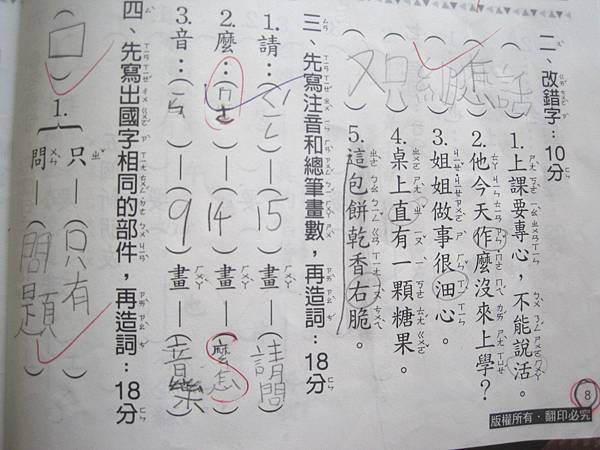 二、改錯字：10分
（話）1.上課要專心，不能說活。
（怎）2.他今天作麼沒來上學？
（細）3.姐姐做事很泊心。
（只）4.桌上直有一顆糖果。
（又）5.這包餅乾香右脆。
三、先寫注音和總筆畫數，再造詞：18分
1.請：（ㄑㄧㄥˇ）—（15）畫—（請問）
2.麼：（）—（14）畫—（麼怎）
3.音：（ㄧㄣ）—（9）畫—（音樂）
四、先寫出國字相同的部件，再造詞：18分
（口）1.只—（只有）
問—（問題）
8
版權所有‧翻印必究